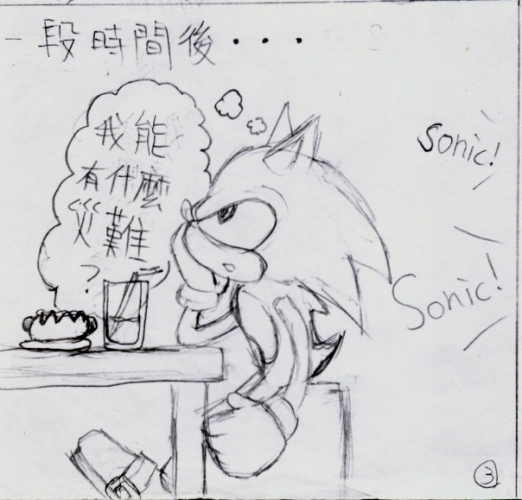 一段時間後...
我能
有什麼
災難
?
Sonic!
Sonic!
3